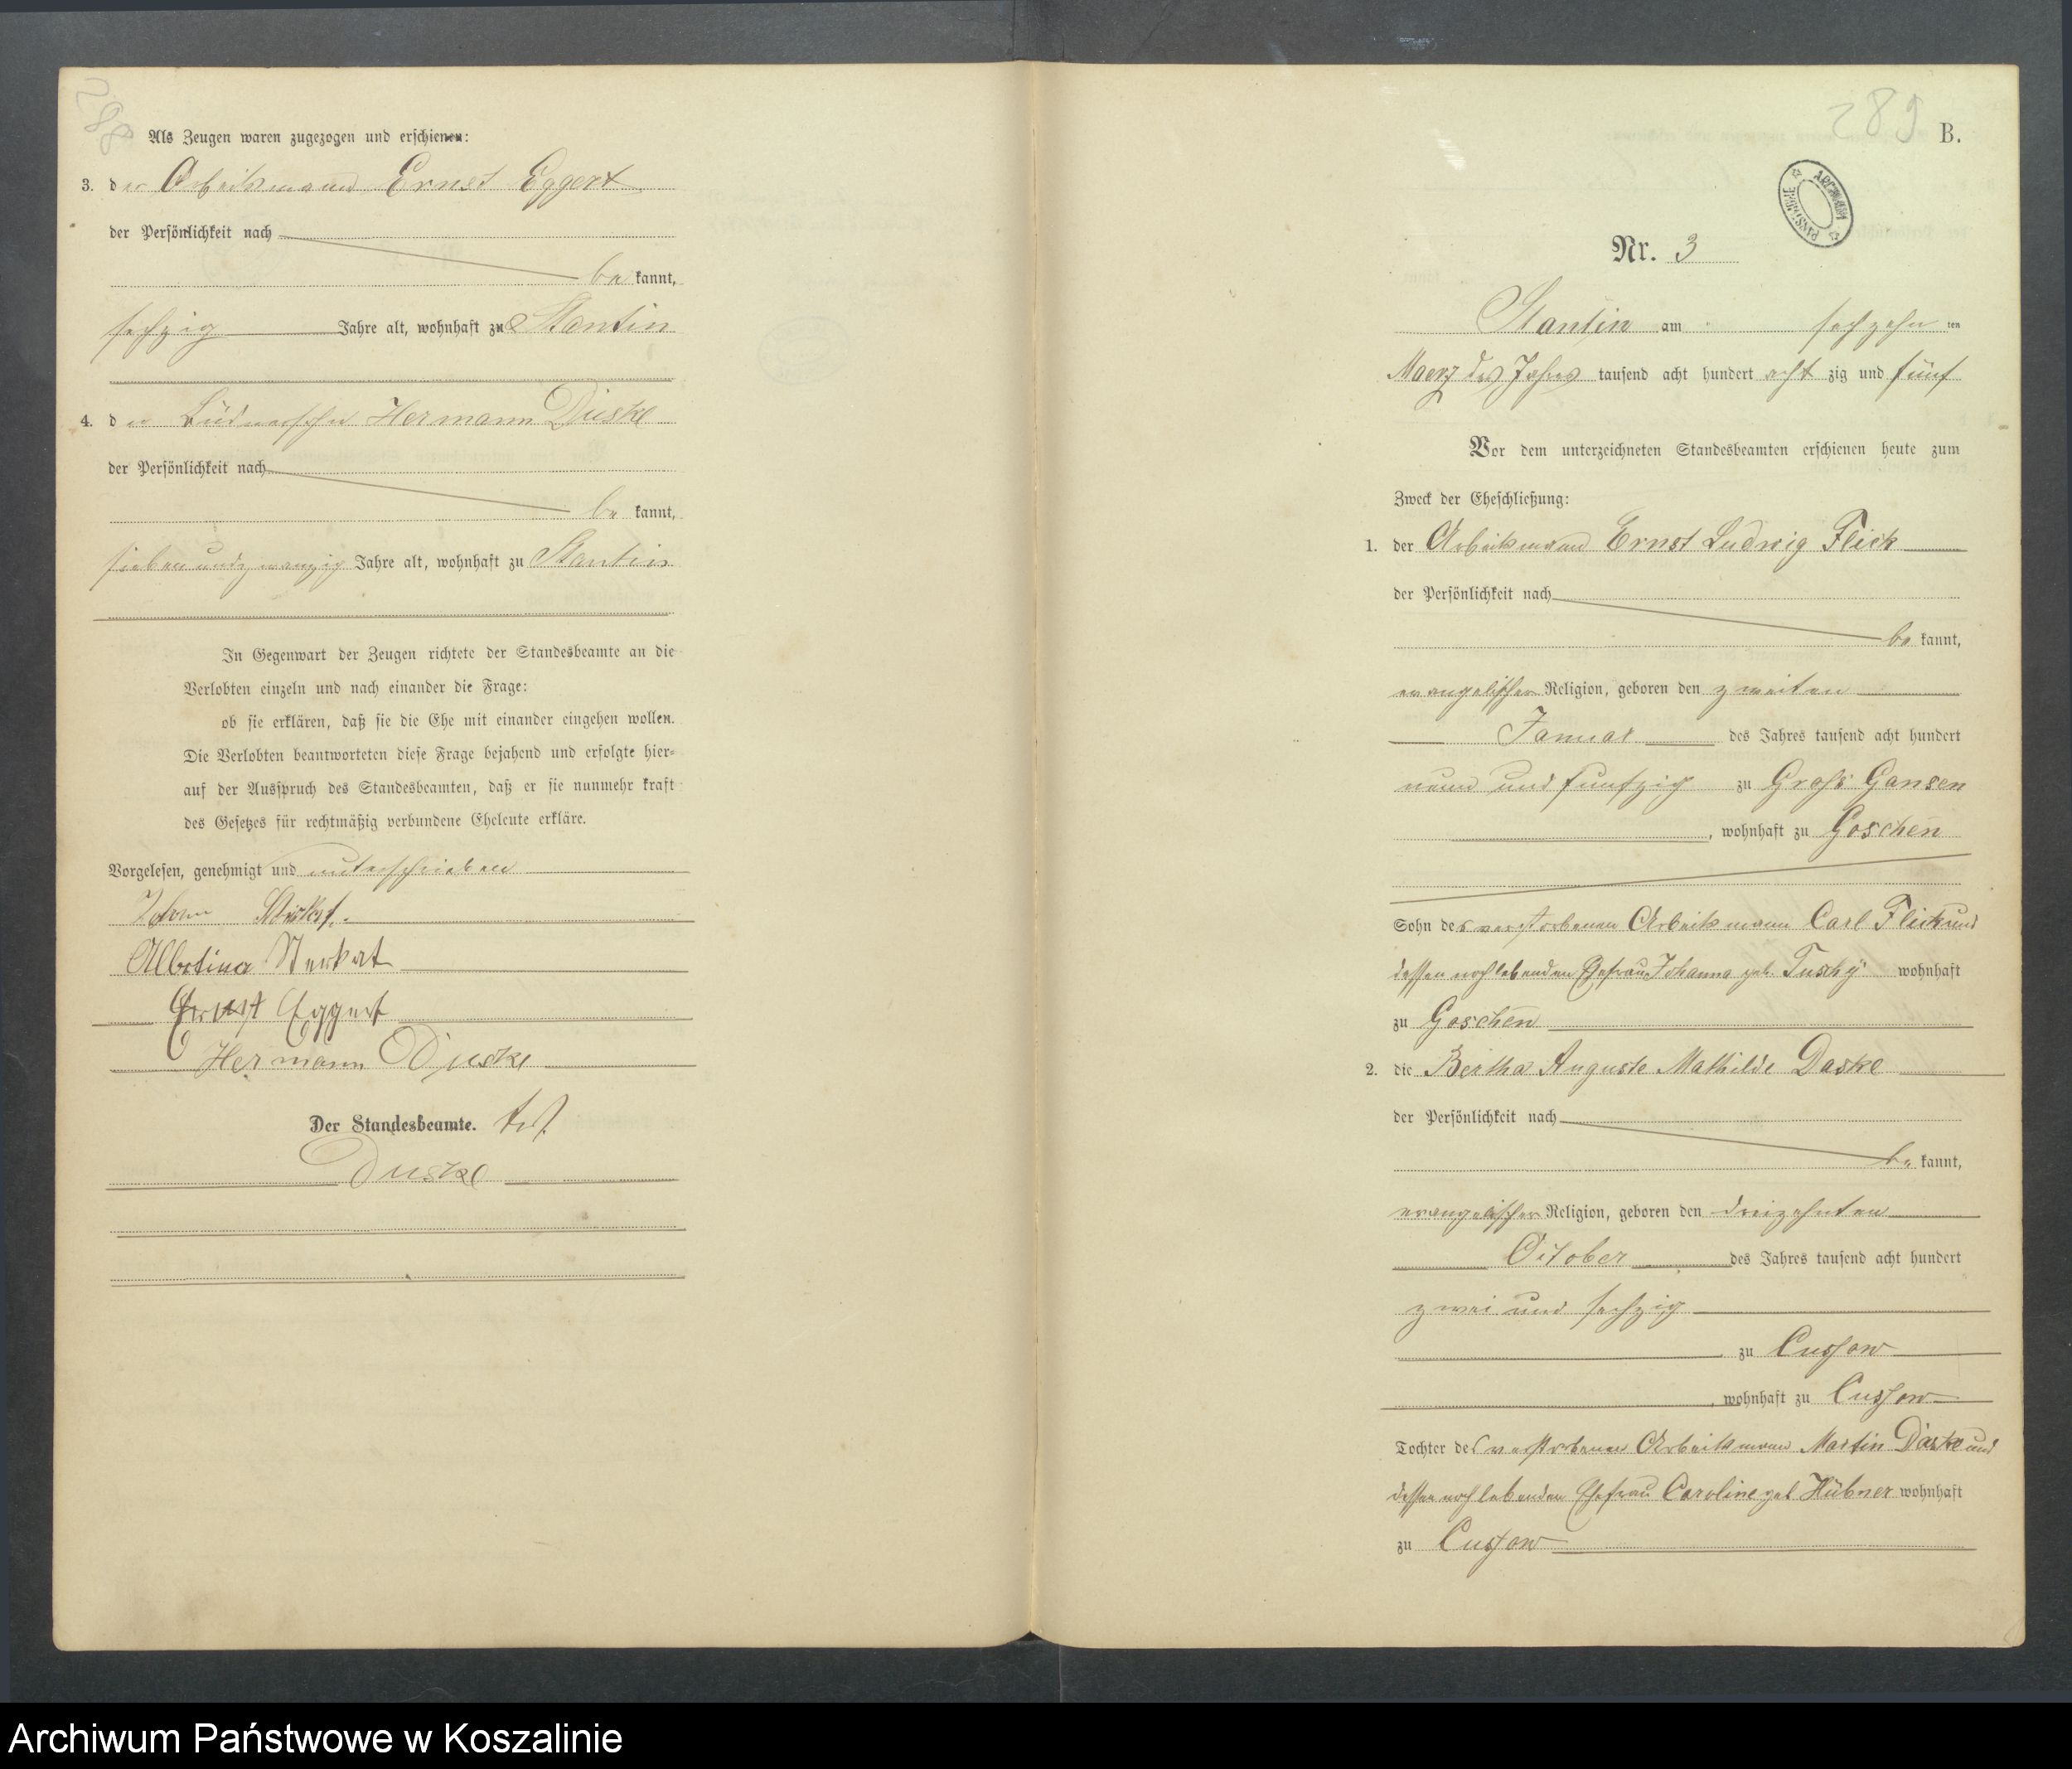 Als Zeugen waren zugezogen und erschienen:
3. der Arbeitsmann Ernst Eggert
der Persönlichkeit nach
be kannt,
sechzig Jahre alt, wohnhaft zu Stantin
4. der Büdnersohn Hermann Duske
der Persönlichkeit nach
be kannt,
sieben und zwanzig Jahre alt, wohnhaft zu Stantin
In Gegenwart der Zeugen richtete der Standesbeamte an die
Verlobten einzeln und nach einander die Frage:
ob sie erklären, daß sie die Ehe mit einander eingehen wollen.
Die Verlobten beantworteten diese Frage bejahend und erfolgte hier-
auf der Ausspruch des Standesbeamten, daß er sie nunmehr kraft
des Gesetzes für rechtmäßig verbundene Eheleute erkläre.
Vorgelesen, genehmigt und unterschrieben
Albertina
Ernst Eggert
Hermann Duske
Der Standesbeamte.
Duske
289
B.
ARCHIWUM PAŃSTWOWE
Nr. 3
Stantin am sechzehn ten
Maerz des Jahres tausend acht hundert acht zig und fünf
Vor dem unterzeichneten Standesbeamten erschienen heute zum
Zweck der Eheschließung:
1. der Arbeitsmann Ernst Ludwig Flick
der Persönlichkeit nach
be kannt,
evangelischer Religion, geboren den zweiten
Januar des Jahres tausend acht hundert
neun und funfzig zu Groß Gansen
, wohnhaft zu Goschen
Sohn des verstorbenen Arbeitsmann Carl Flick und
dessen noch lebenden Ehefrau Johanna geb. wohnhaft
zu Goschen
2. die Bertha Auguste Mathilde Daske
der Persönlichkeit nach
be kannt,
evangelischer Religion, geboren den dreizehnten
October des Jahres tausend acht hundert
zwei und sechzig
zu Cussow
, wohnhaft zu Cussow
Tochter des verstorbenen Arbeitsmann Martin Daske und
dessen noch lebenden Ehefrau Caroline geb Hübner wohnhaft
zu Cussow
Archiwum Państwowe w Koszalinie